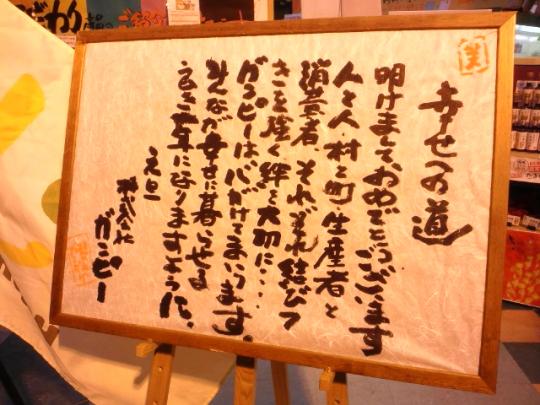 幸せへの道
明けましておめでとうございます
人と人・村と町生産者と
消費者それぞれ結びつ
きを強く絆を大切に・・・
ガッピーは心がけてまいります。
みんなが幸せに暮らせる
元旦
株式会社
ガッピー